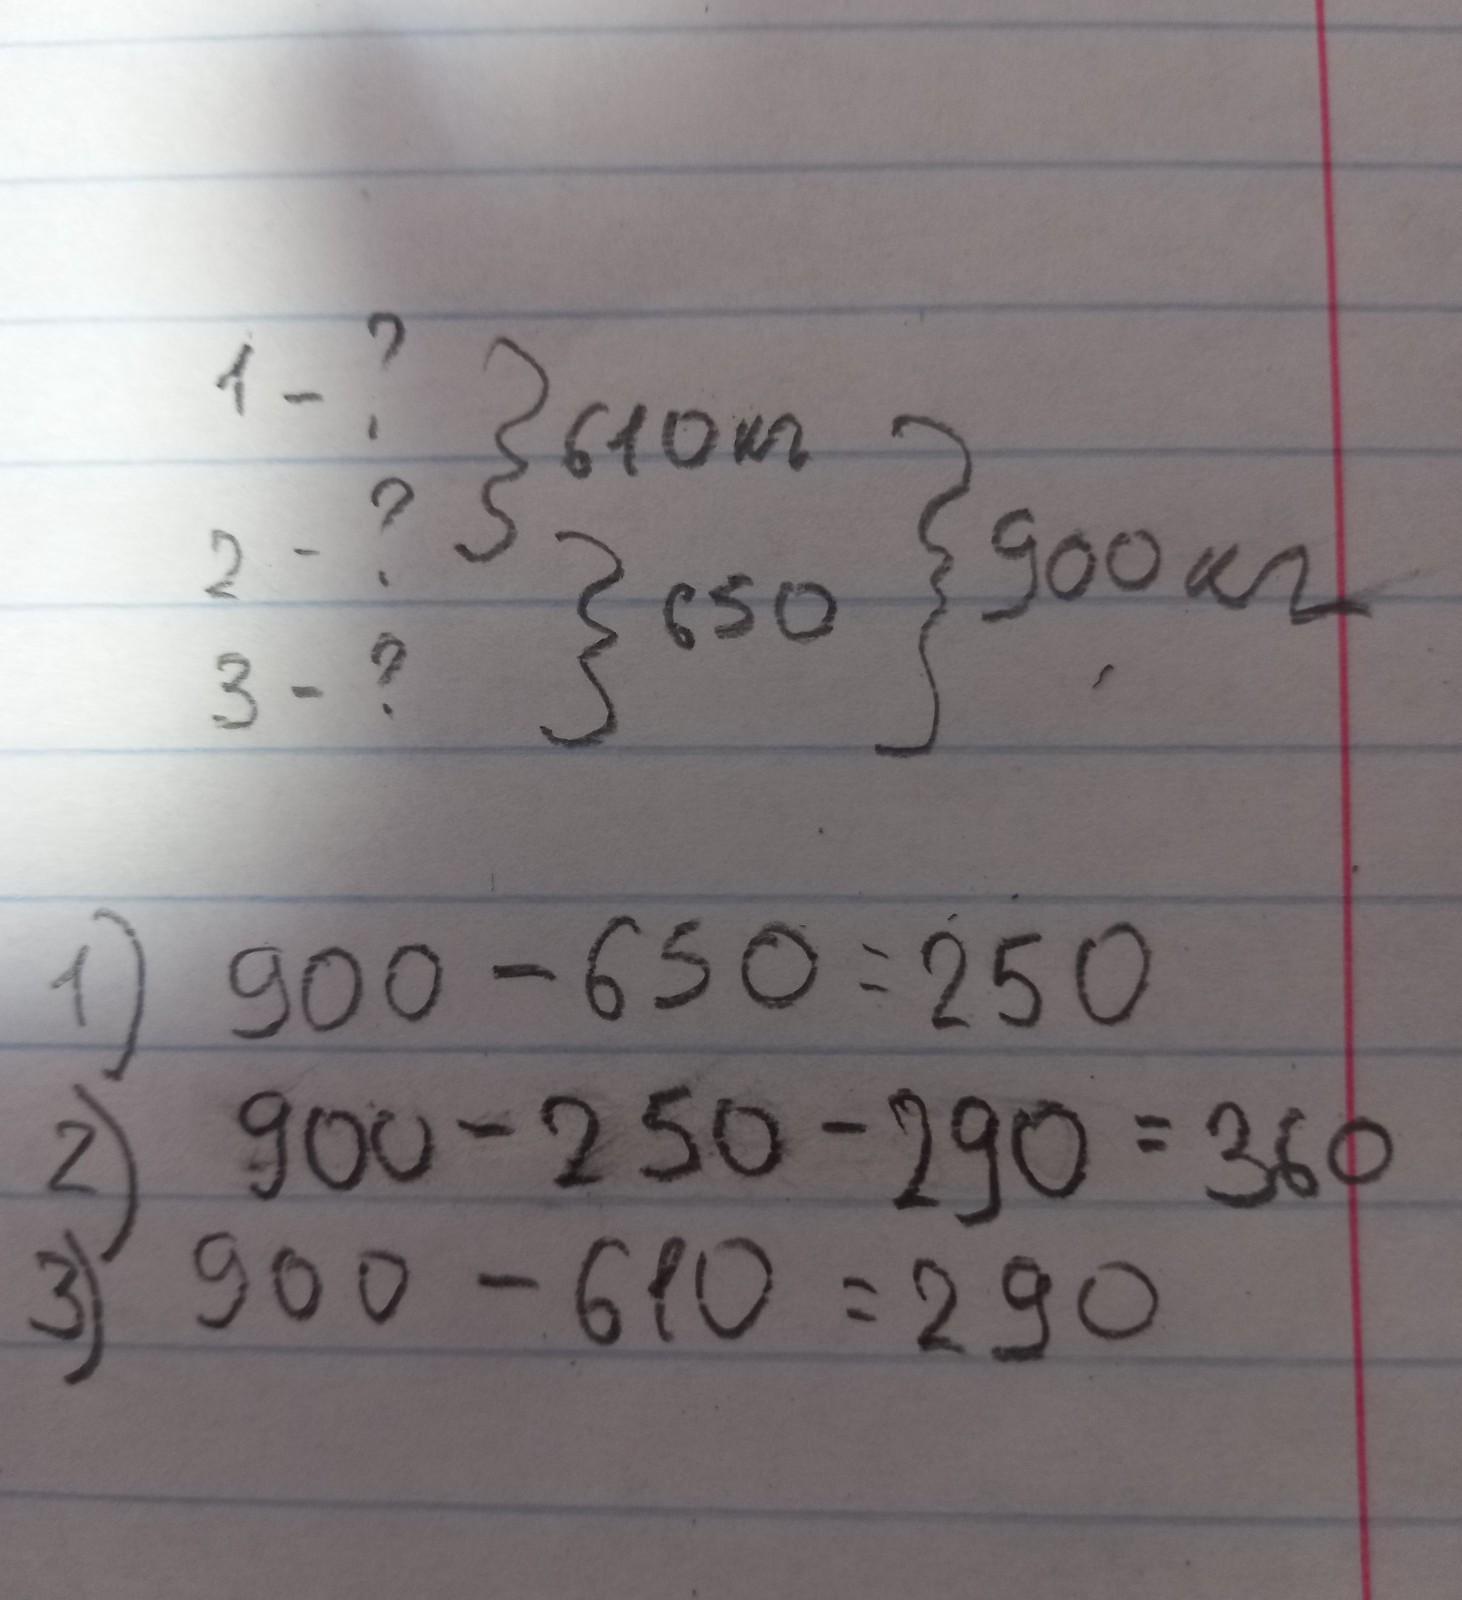 1 - ? } 610 кг
2 - ? } 650 } 900 кг
3 - ?
1) 900 - 650 = 250
2) 900 - 250 - 290 = 360
3) 900 - 610 = 290